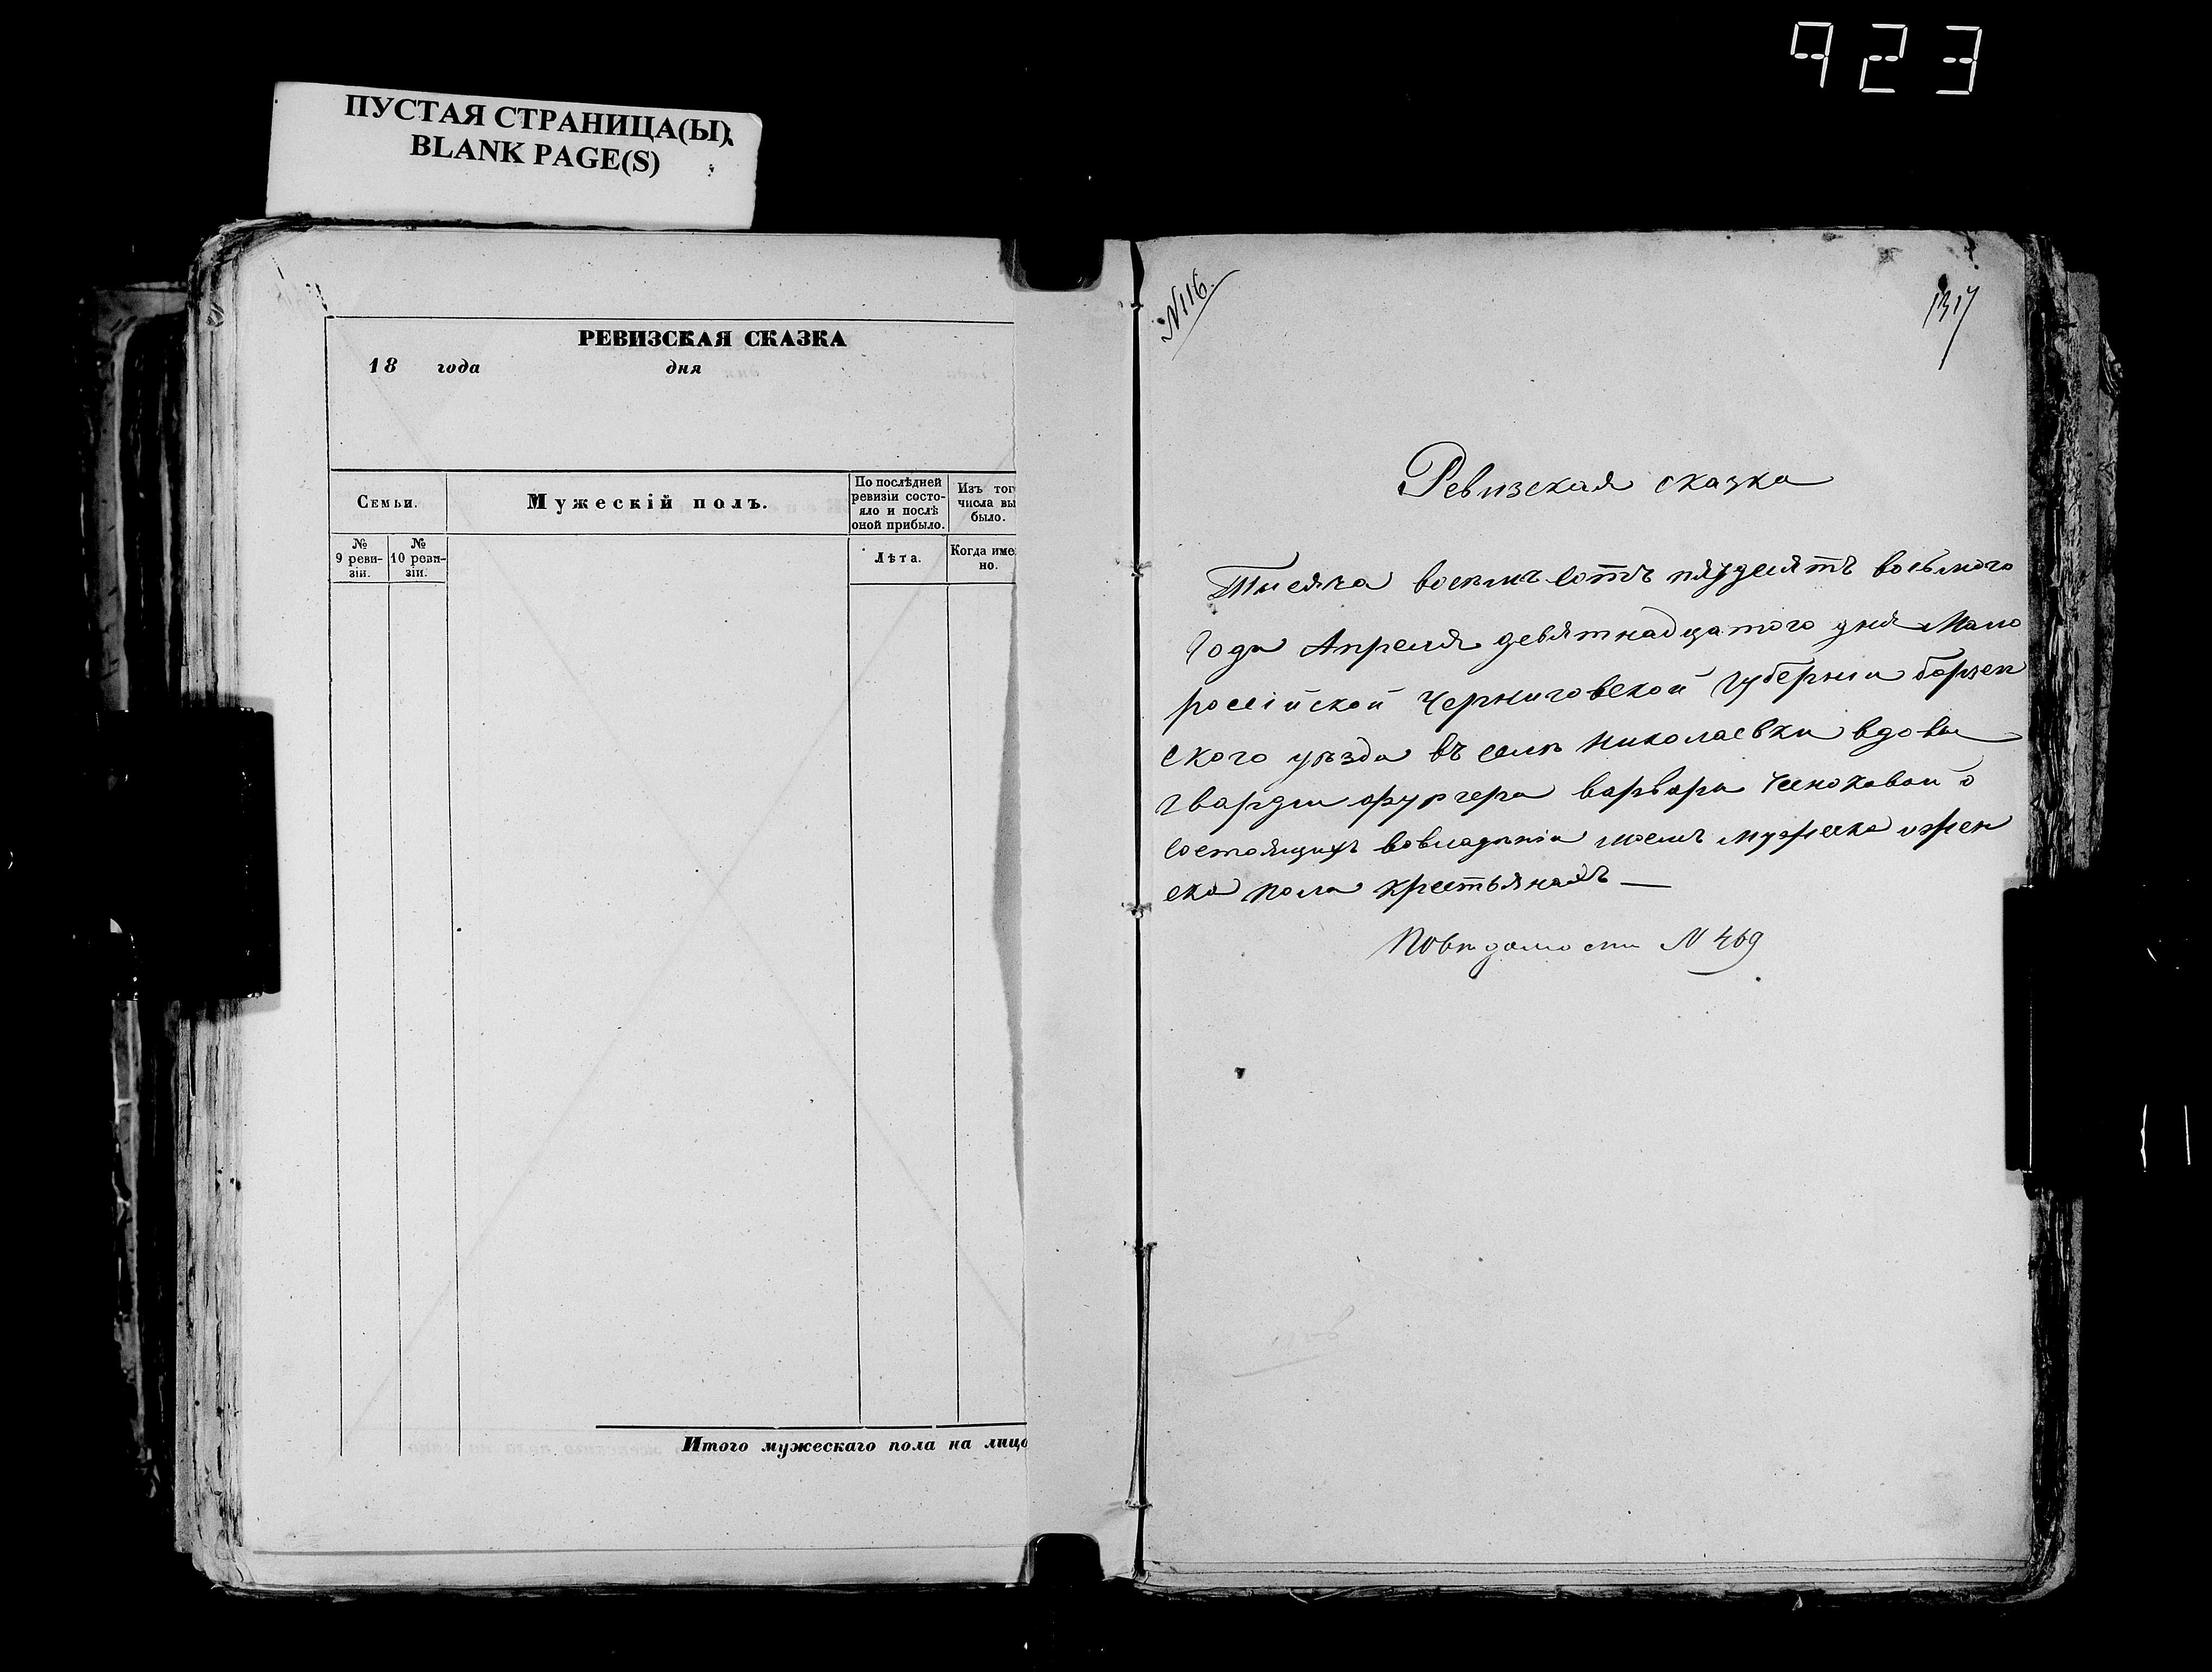 923
ПУСТАЯ СТРАНИЦА(Ы)
BLANK PAGE(S)
РЕВИЗСКАЯ СКАЗКА
18 года дня
Семьи.
Мужескій полъ.
По послѣдней ревизіи состо-
яло и послѣ оной прибыло.
Изъ тог
числа вы
было.
№ 9 реви-
зіи.
№ 10 реви-
зіи.
Лѣта.
Когда име
но.
Итого мужескаго пола на лицо
N 116.
1317
Ревизская сказка
Тысяча восемъ сотъ пядесятъ восьмого
Года Апреля девятнадцатого дня Мало
россійской Черниговской Губерніи борзен
ского уѣзда въ селѣ Николаевки вдовы
гвардіи фурьера варвары о
состоящихъ вовладѣніи моемъ мужеска ижен
ска пола крестьянахъ —
Повѣдомости N 469